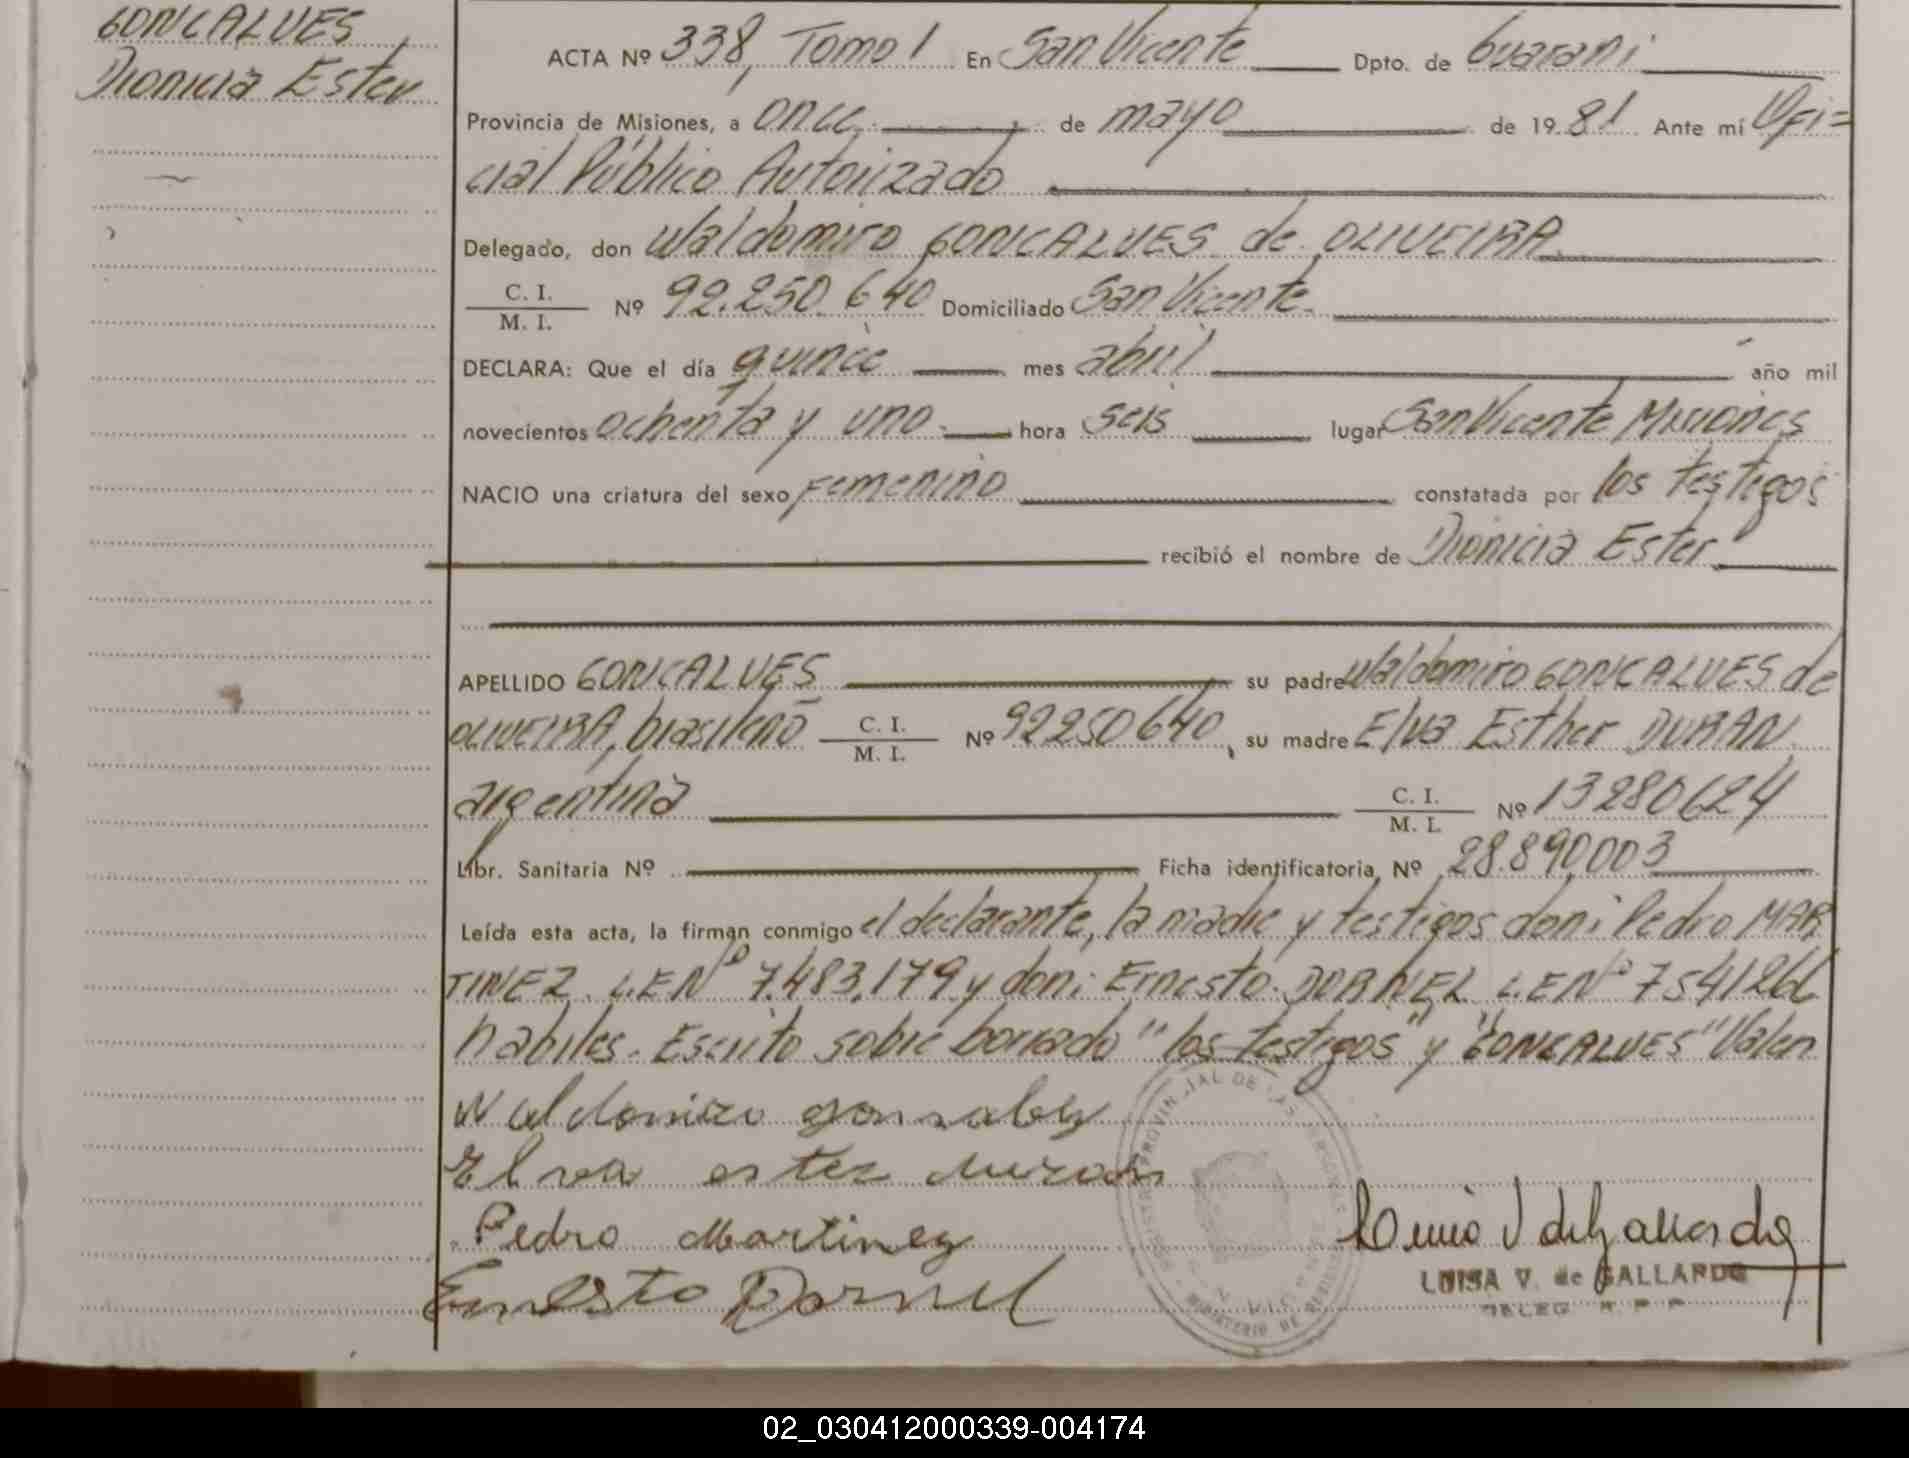 GONCALVES
Dionicia Ester
ACTA Nº 338, Tomo I En San Vicente Dpto. de Guarani
Provincia de Misiones, a once de mayo de 1981 Ante mí Ofi=
cial Público Autorizado
Delegado, don Waldomiro GONCALVES de OLIVEIRA
C. I.
M. I. Nº 92.250.640 Domiciliado San Vicente.
DECLARA: Que el día quince mes abril año mil
novecientos ochenta y uno hora seis lugar San Vicente Misiones
NACIO una criatura del sexo Femenino constatada por los testigos
recibió el nombre de Dionicia Ester
APELLIDO GONCALVES su padre Waldomiro GONCALVES de
OLIVEIRA, brasileño C. I. M. I. Nº 92250640, su madre Elva Esther DURAN
argentina C. I. M. I. Nº 13280624
Libr. Sanitaria Nº Ficha identificatoria Nº 28.890.003
Leída esta acta, la firman conmigo el declarante, la madre y testigos don: Pedro MAR
TINEZ L.E Nº 7.483.179 y don: Ernesto DORNEL L.E Nº
habiles. Escrito sobre borrado "los testigos" y "GONCALVES" Valen
Waldomiro gonsalves
Elva ester duran
Pedro Martinez
Ernesto Dornel
LUISA V. de GALLARDO
DELEG. R. P. P.
REGISTRO PROVINCIAL DE LAS PERSONAS
MINISTERIO DE
02_030412000339-004174